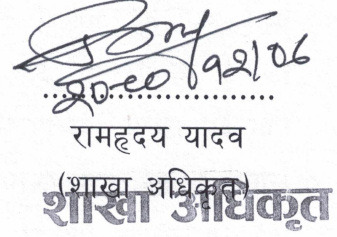 रामहृदय यादव
(शाखा अधिकृत)
शाखा अधिकृत